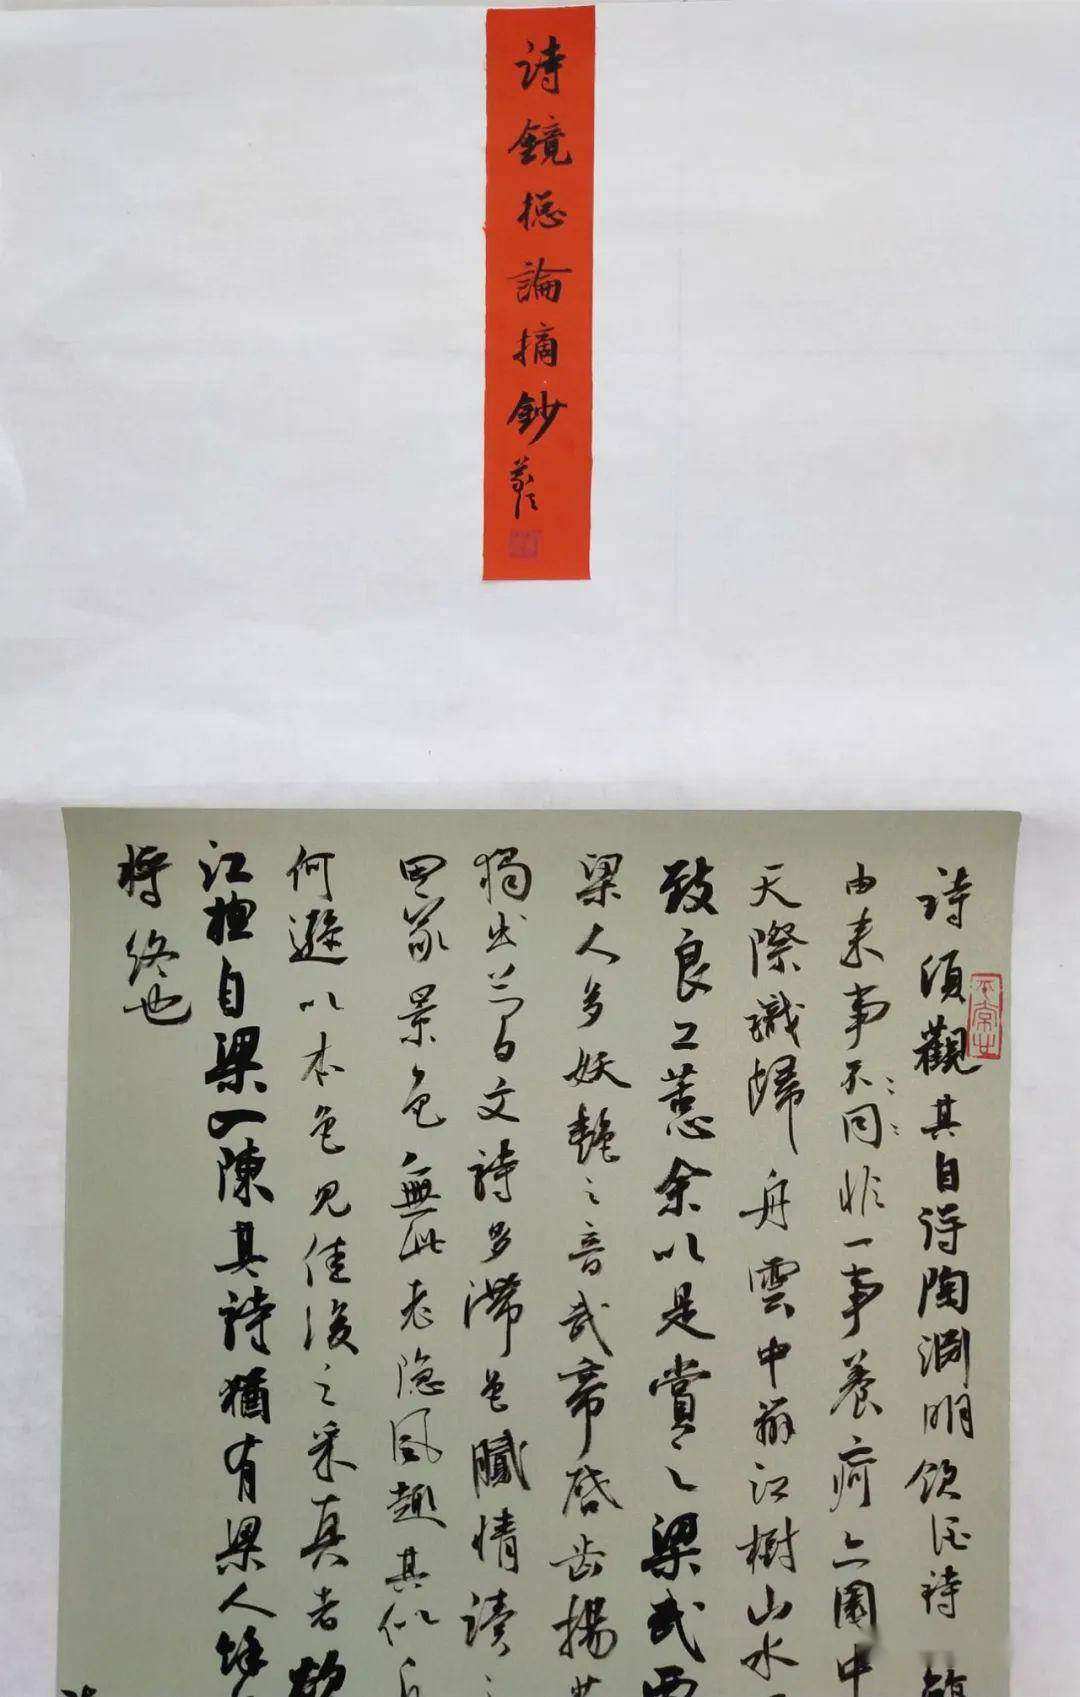 詩鏡摠論摘鈔
詩須觀其自得陶淵明飲酒詩
由来事不同非一事養痾亦園中
天際識歸舟雲中辨江樹山水
致良工蕙余以是賞之梁武西
梁人多妖艷之音武帝啓齿揚
獨出兰自文詩多滯色膩情讀之
田家景色無此老隐风趣其似
何遜以本色见佳後之采真者欲
江摠自梁入陳其詩猶有梁人餘
将終也